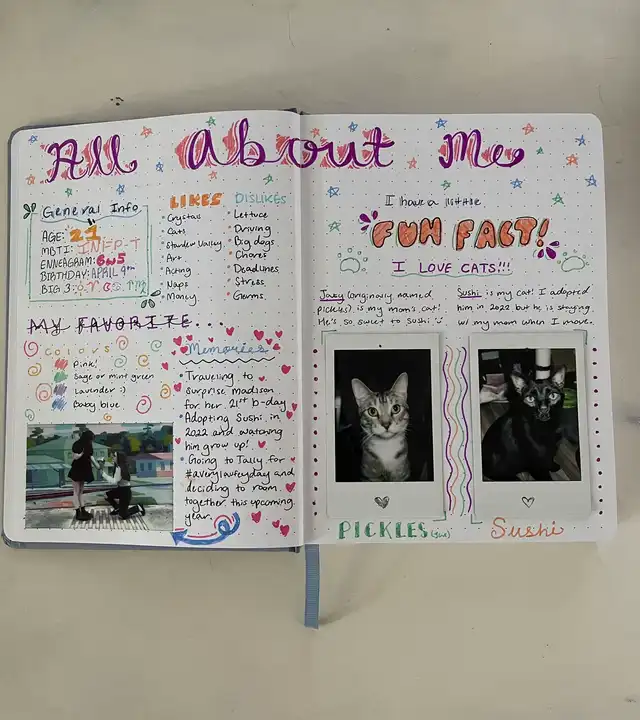 All About Me
General Info
AGE: 21
MBTI: INFP-T
ENNEAGRAM: 6w5
BIRTHDAY: APRIL 9th
BIG 3:
LIKES
Crystals
Cats
Stardew Valley
Art
Acting
Naps
Money
DISLIKES
Lettuce
Driving
Big dogs
Chores
Deadlines
Stress
Germs
MY FAVORITE...
Colors
Pink!
Sage or mint green
Lavender :)
Baby blue
Memories
Traveling to
surprise madison
for her 21st b-day
Adopting Sushi in
2022 and watching
him grow up!
Going to Tally for
#averylaufeyday and
deciding to room
together this upcoming
year.
I have a little
FUN FACT!
I LOVE CATS!!!
(originally named
pickles) is my mom's cat!
He's so sweet to Sushi
Sushi is my cat! I adopted
him in 2022 but he is staying
w/ my mom when I move.
PICKLES
Sushi